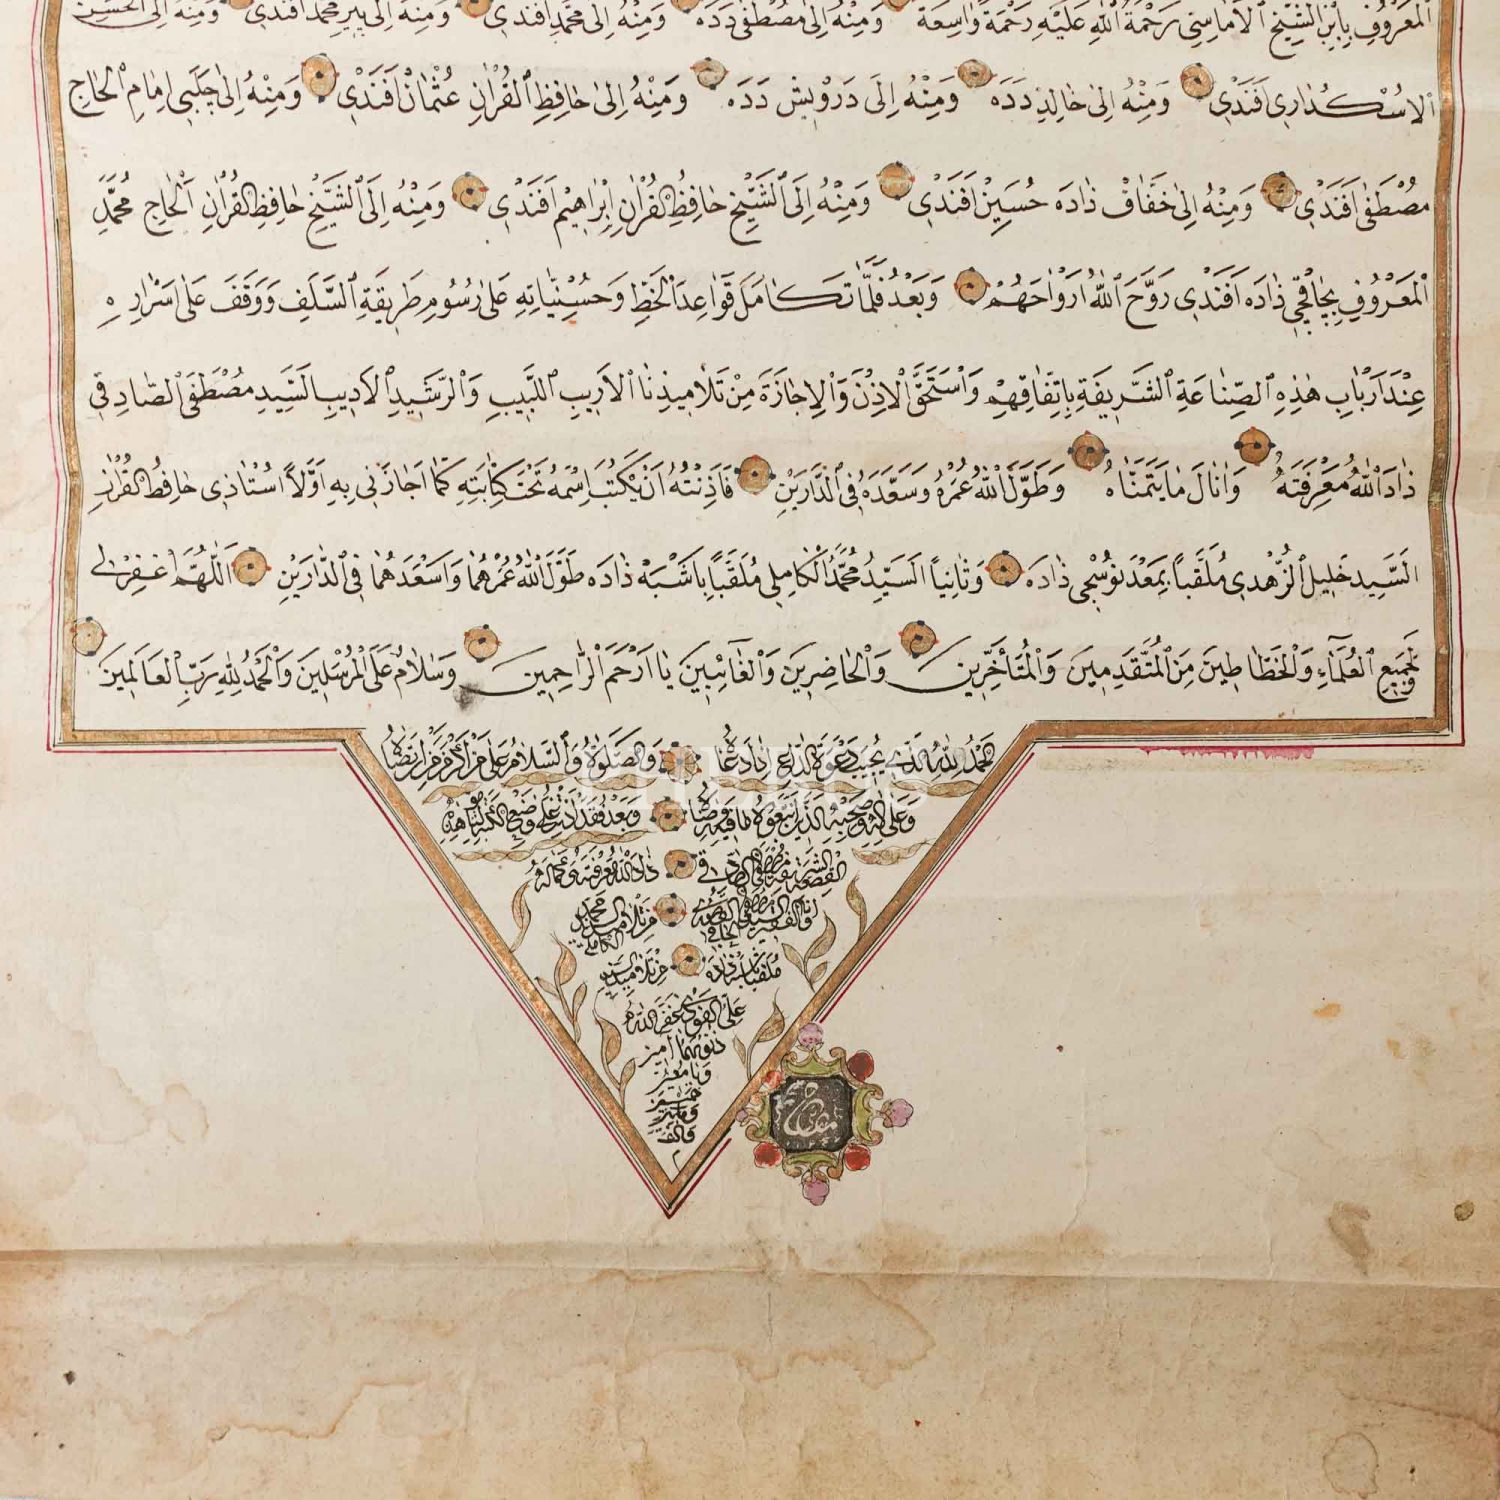 المعروف بابن الشيخ الاماسي رحمة الله عليه رحمة واسعة ومنه الى مصطفى دده ومنه الى محمد افندي ومنه الى پير محمد افندي ومنه الى الحسن
الاسكداري افندي ومنه الى خالد دده ومنه الى درويش دده ومنه الى حافظ القرآن عثمان افندي ومنه الى چلبي امام الحاج
مصطفى افندي ومنه الى خفاف زاده حسين افندي ومنه الى الشيخ حافظ القرآن ابراهيم افندي ومنه الى الشيخ حافظ القرآن الحاج محمد
المعروف زاده افندي روح الله ارواحهم وبعد فلما تكامل قواعد الخط وحسنياته على رسوم طريقة السلف ووقف على اسراره
عند ارباب هذه الصناعة الشريفة باتفاقهم واستحق الاذن والاجازة من تلاميذنا الاريب اللبيب والرشيد الاديب السيد مصطفى الصادقي
زاد الله معرفته وانال ما يتمناه وطول الله عمره وسعده في الدارين فاذنته ان يكتب اسمه تحت كتابته كما اجازني به اولا استاذي حافظ القرآن
السيد خليل الزهدي ملقبا بمعدنوسجي زاده وثانيا السيد محمد الكاملي ملقبا باشبه زاده طول الله عمرهما واسعدهما في الدارين اللهم اغفر لي
ولجميع العلماء والخطاطين من المتقدمين والمتأخرين والحاضرين والغائبين يا ارحم الراحمين وسلام على المرسلين والحمد لله رب العالمين
الحمد لله الذي يجيب دعوة الداع اذا دعاه والصلوة والسلام على من اكرم من ارتضاه
وعلى اله وصحبه الذين اتبعوه لما فيه رضاه وبعد فقد اذنت على وضع الكتبة لنامق هذه
القطعة مصطفى الصادقي زاد الله معرفته وعمله
وانا الفقير السيد مصطفى من تلاميذ السيد محمد الكاملي
ملقبا باشبه زاده من تلاميذ السيد
علي غفر الله
ذنوبهما امين